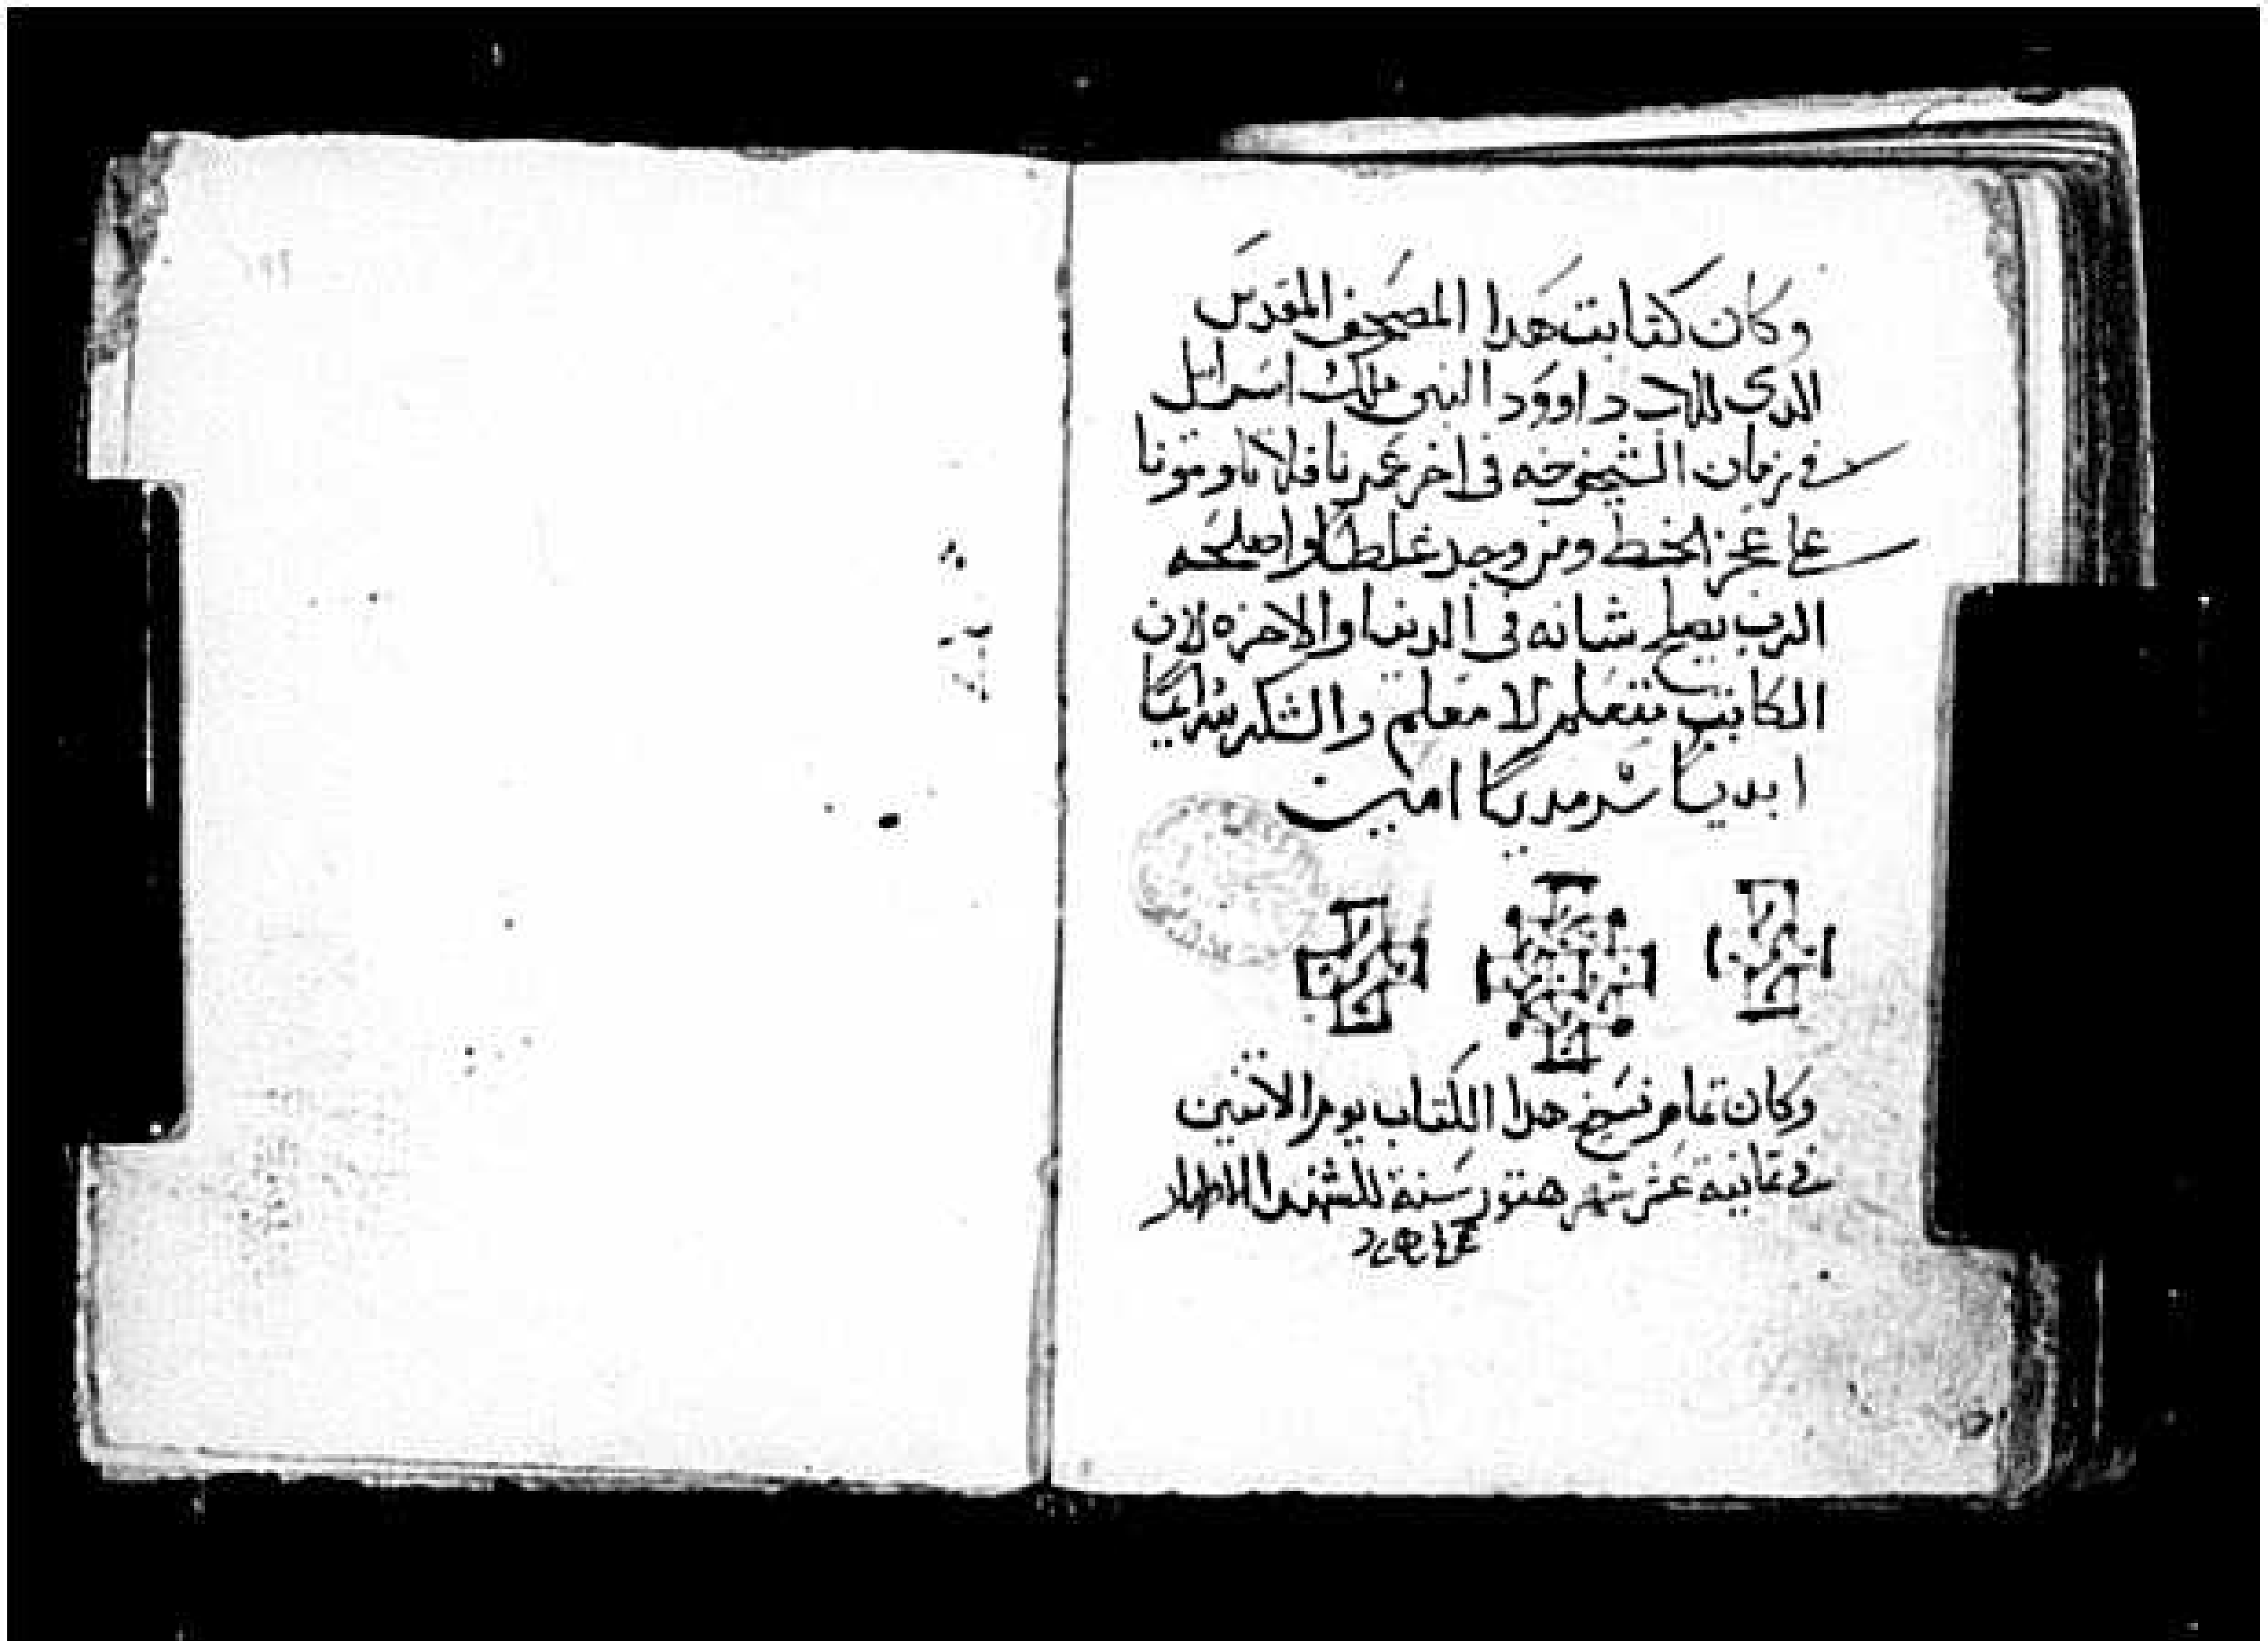 وكان كتابت هدا المصحف المقدس
الدى للاب داوود النبى ملك اسرايل
فى زمان الشيخوخه فى اخر عمرنا فلا تلومونا
على عجز الخط ومن وجد غلطا واصلحه
الرب يصلح شانه فى الدنيا والاخره لان
الكاتب متعلم لا معلم والشكر لله دايما
ابديا سرمديا امين
وكان تمام نسخ هدا الكتاب يوم الاتنين
فى تمانية عشر شهر هتور سنة للشهدا الاطهار